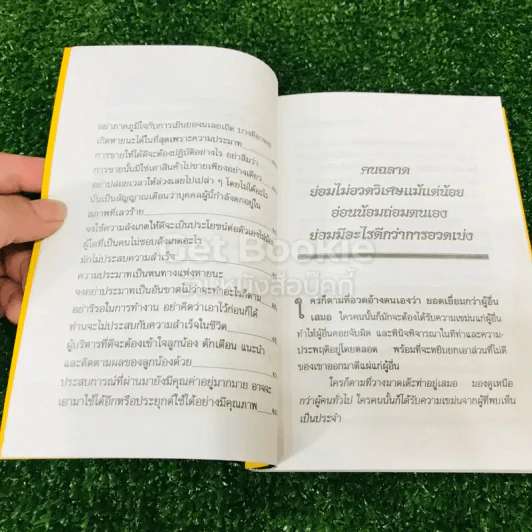 อย่าภาคภูมิใจกับการเป็นยอดคนเลยเถิด บางทีอาจจะ
เกิดหายนะได้ในที่สุดเพราะความประมาท
การขายให้ได้ดีจะต้องปฏิบัติอย่างไร อย่าลืมว่า
การขายนั้นมิใช่เอาสินค้าไปขายเพียงอย่างเดียว
อย่าปล่อยเวลาให้ล่วงเลยไปเปล่า ๆ โดยไม่ได้อะไร
นั่นเป็นสัญญาณเตือนว่าบุคคลผู้นี้กำลังตกอยู่ใน
สภาพที่เลวร้าย
จงใช้ความสังเกตให้ดีจะเป็นประโยชน์ต่อตัวเอง
ผู้ใดที่เป็นคนไม่ชอบสังเกตอะไร
มักไม่ประสบความสำเร็จ
ความประมาทเป็นหนทางแห่งหายนะ
จงอย่าประมาทเป็นอันขาดไม่ว่าจะทำอะไรก็ตาม
อย่ารีรอในการทำงาน อย่าคิดว่าเอาไว้ก่อนก็ได้
ท่านจะไม่ประสบกับความสำเร็จในชีวิต
ผู้บริหารที่ดีจะต้องเข้าใจลูกน้อง ตักเตือน แนะนำ
และติดตามผลของลูกน้องด้วย
ประสบการณ์ที่ผ่านมายังมีคุณค่าอยู่มากมาย อาจจะ
เอามาใช้ได้อีกหรือประยุกต์ใช้ได้อย่างมีคุณภาพ
คนฉลาด
ย่อมไม่อวดวิเศษแม้แต่น้อย
อ่อนน้อมถ่อมตนเอง
ย่อมมีอะไรดีกว่าการอวดเบ่ง
ใครก็ตามที่อวดอ้างตนเองว่า ยอดเยี่ยมกว่าผู้อื่น
เสมอ ใครคนนั้นก็มักจะได้รับความเขม่นจากผู้อื่น
ทำให้ผู้อื่นคอยจับผิด และพินิจพิจารณาในทีท่าและความ
ประพฤติอยู่โดยตลอด พร้อมที่จะหยิบยกเอาส่วนที่ไม่ดี
ของเขาออกมาตีแผ่แก่ผู้อื่น
ใครก็ตามที่วางมาดเต๊ะท่าอยู่เสมอ มองดูเหนือ
กว่าผู้คนทั่วไป ใครคนนั้นก็ได้รับความเขม่นจากผู้ที่พบเห็น
เป็นประจำ
Net Bookie